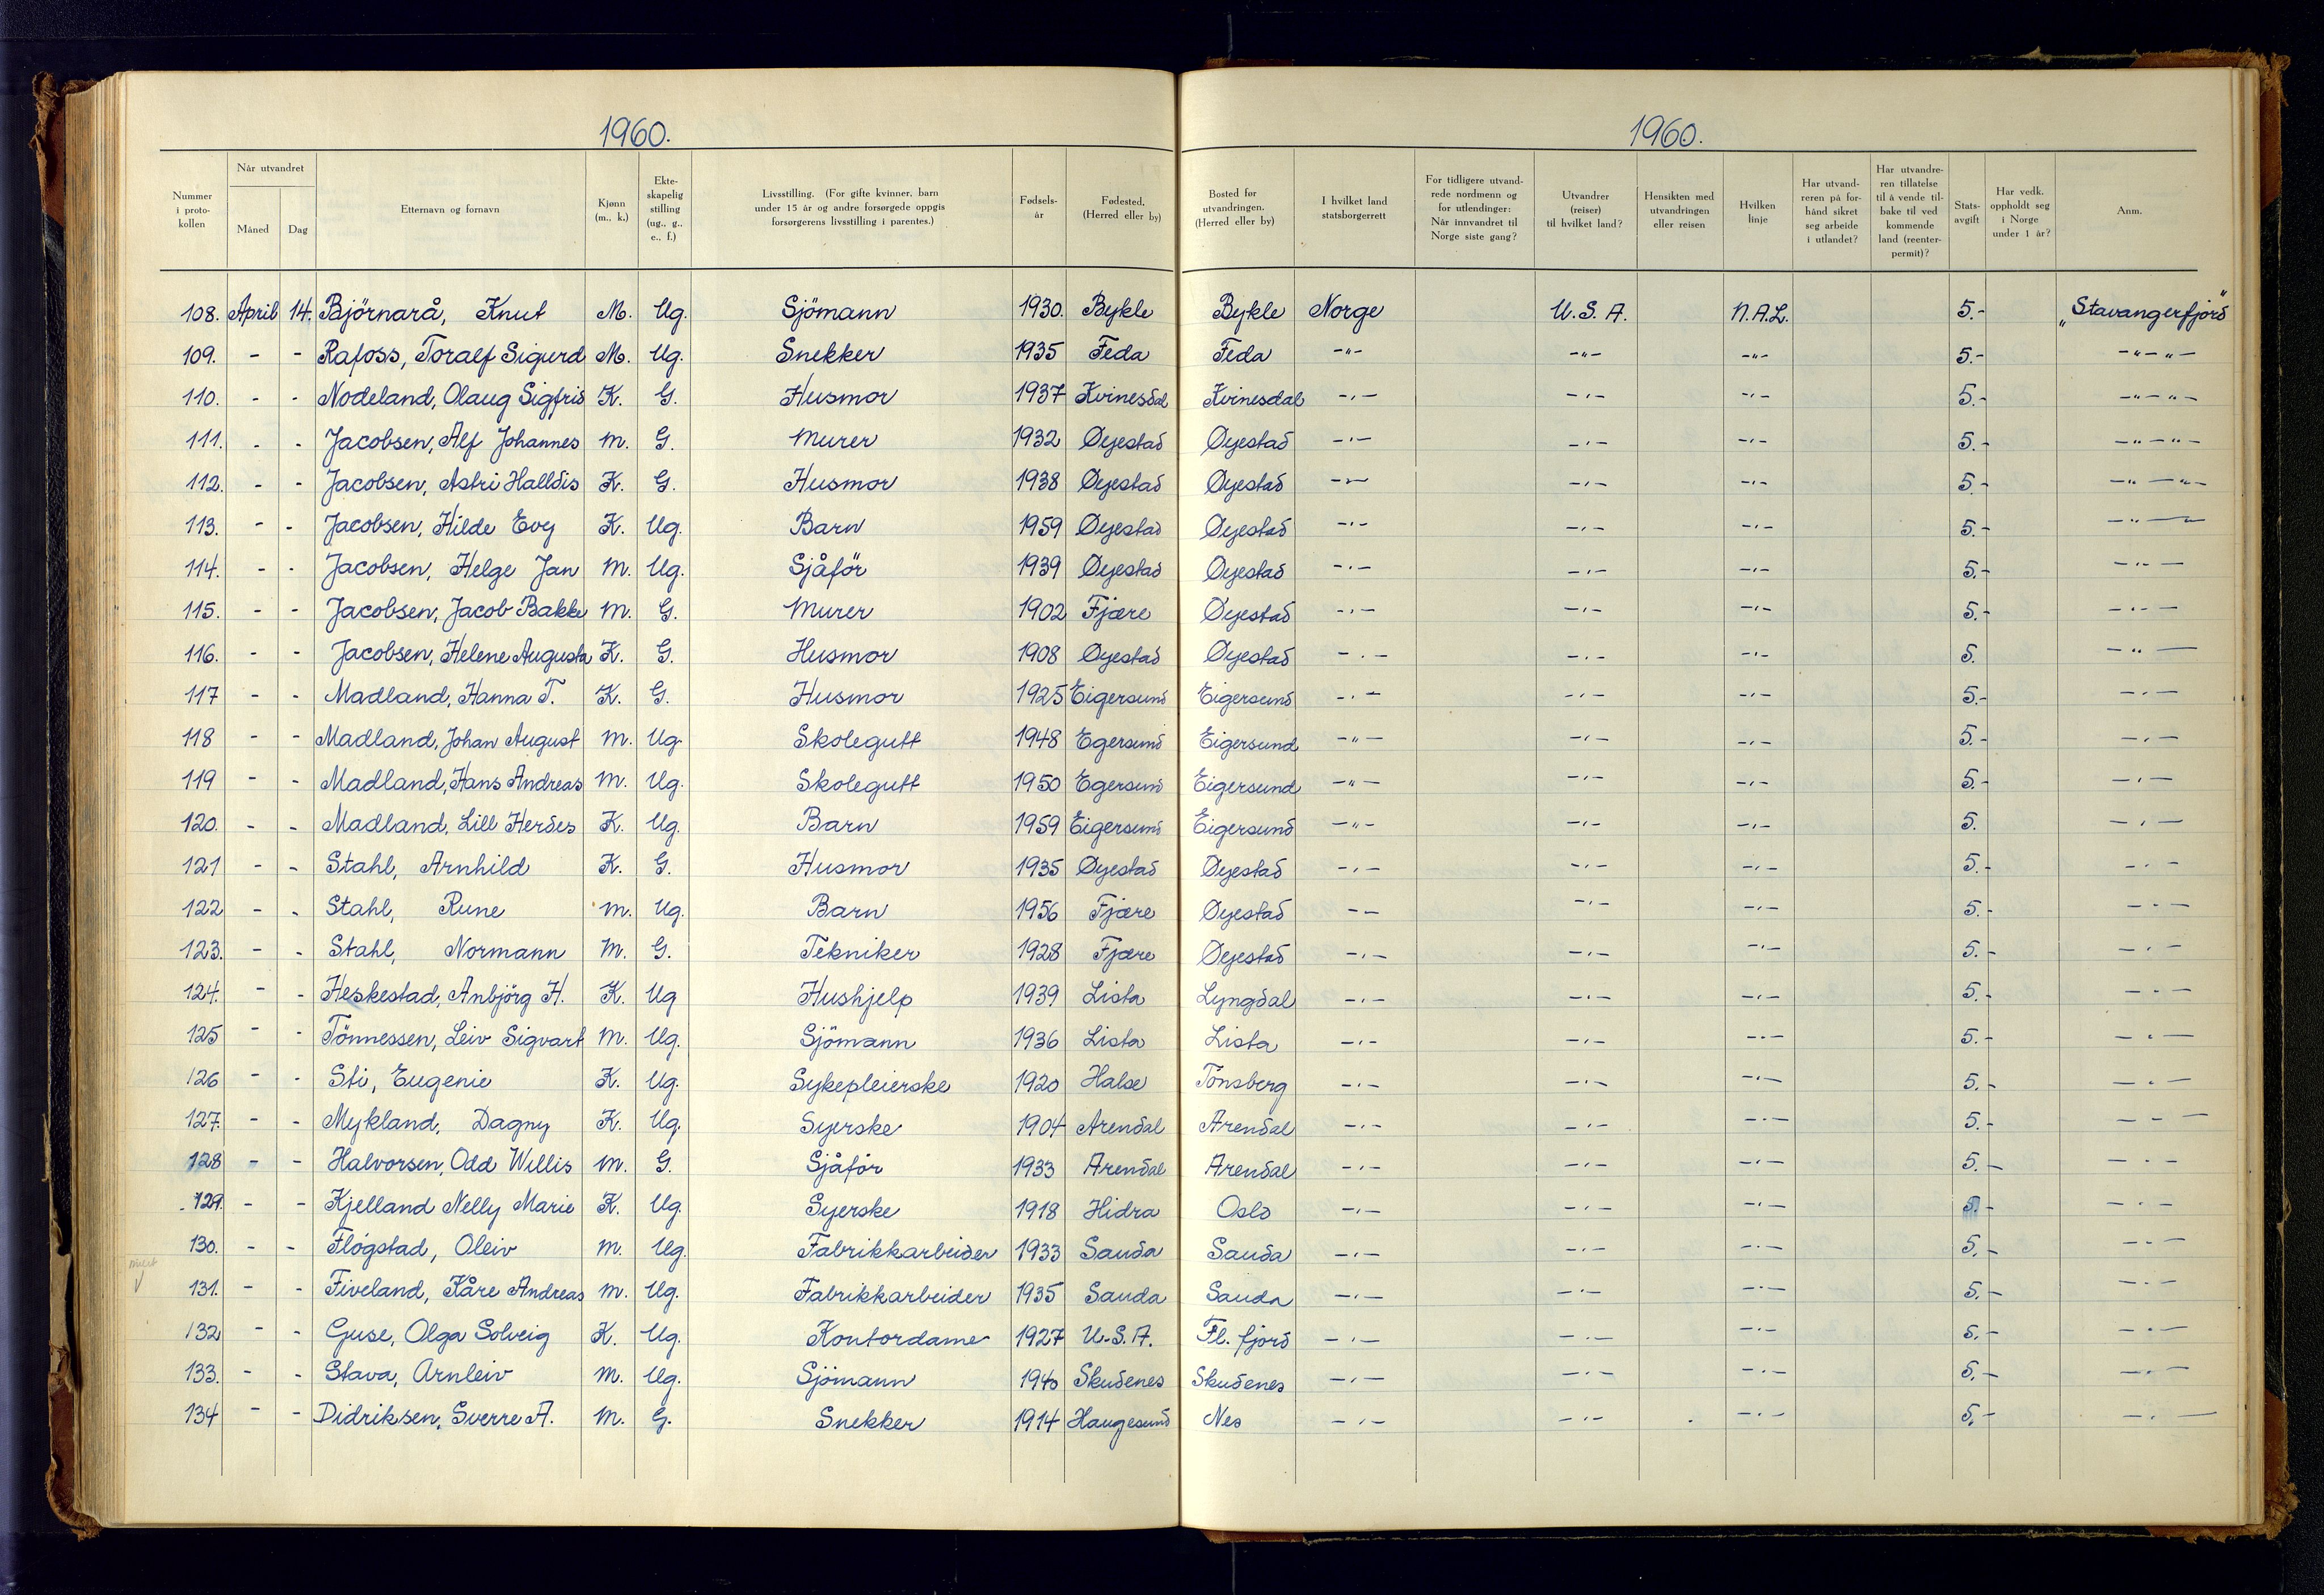 1960. 1960.
Nummer i proto-kollen | Når utvandret | Måned | Dag | Etternavn og fornavn | Kjønn (m., k.) | Ekte-skapelig stilling (ug., g., e., f.) | Livsstilling. (For gifte kvinner, barn under 15 år og andre forsørgede oppgis forsørgerens livsstilling i parentes.) | Fødsels-år | Fødested. (Herred eller by) | Bosted før utvandringen. (Herred eller by) | I hvilket land statsborgerrett | For tidligere utvand-rede nordmenn og for utlendinger: Når innvandret til Norge siste gang? | Utvandrer (reiser) til hvilket land? | Hensikten med utvandringen eller reisen | Hvilken linje | Har utvand-reren på for-hånd sikret seg arbeide i utlandet? | Har utvandre-ren tillatelse til å vende til-bake til ved kommende land (reenter-permit)? | Stats-avgift | Har vedk. oppholdt seg i Norge under 1 år? | Anm.
108. April 14. Björnarå, Knut M. Ug. Sjömann 1930. Bykle Bykle Norge U.S.A. N.A.L. 5.- „Stavangerfjord"
109. - - Rafoss, Toralf Sigurd M. Ug. Snekker 1935 Feda Feda -"- -"- -"- 5.- -"-"-
110. - - Nodeland, Olaug Sigfrid K. G. Husmor 1937 Kvinesdal Kvinesdal -"- -"- -"- 5.- -"-"-
111. - - Jacobsen, Alf Johannes M. G. Murer 1932 Øyestad Øyestad -"- -"- -"- 5.- -"-"-
112. - - Jacobsen, Astri Halldis K. G. Husmor 1938 Øyestad Øyestad -"- -"- -"- 5.- -"-"-
113. - - Jacobsen, Hilde Evy K. Ug. Barn 1959 Øyestad Øyestad -"- -"- -"- 5.- -"-"-
114. - - Jacobsen, Helge Jan M. Ug. Sjåför 1939 Øyestad Øyestad -"- -"- -"- 5.- -"-
115. - - Jacobsen, Jacob Bakke M. G. Murer 1902 Fjære Øyestad -"- -"- -"- 5.- -"-
116. - - Jacobsen, Helene Augusta K. G. Husmor 1908 Øyestad Øyestad -"- -"- -"- 5. -"-
117 - - Madland, Hanna T. K. G. Husmor 1925 Eigersund Eigersund -"- -"- -"- 5.- -"-
118 - - Madland, Johan August M. Ug. Skolegutt 1948 Egersund Eigersund -"- -"- -"- 5.- -"-
119 - - Madland, Hans Andreas M. Ug. Skolegutt 1950 Egersund Eigersund -"- -"- -"- 5.- -"-
120. - - Madland, Lill Herdes K. Ug. Barn 1959 Eigersund Eigersund -"- -"- -"- 5. -"-
121 - - Stahl, Arnhild K. G. Husmor 1935 Øyestad Øyestad -"- -"- -"- 5.- -"-
122 - - Stahl, Rune M. Ug. Barn 1956 Fjære Øyestad -- -"- -"- 5.- -"-
123. - - Stahl, Normann M. G. Tekniker 1928 Fjære Øyestad -"- -"- -"- 5.- -"-
124. - - Heskestad, Anbjörg H. K. Ug Hushjelp 1939 Lista Lyngdal -"- -"- -"- 5.- -"-
125 - - Tönnessen, Leiv Sigvart M. Ug. Sjömann 1936 Lista Lista -"- -"- -"- 5.- -"-
126 - - Sti, Eugenie K. Ug. Sykepleierske 1920 Halse Tönsberg -"- -"- -"- 5.- -"-
127. - - Mykland, Dagny K. Ug. Syerske 1904 Arendal Arendal -"- -"- -"- 5.- -"-
128 - - Halvorsen, Odd Willis M. G. Sjåför 1933 Arendal Arendal -"- -"- -"- 5.- -"-
129. - - Kjelland Nelly Marie K. Ug. Syerske 1918 Hidra Oslo -"- -"- -"- 5.- -"-
130. - - Flögstad, Oleiv M. Ug. Fabrikkarbeider 1933 Sauda Sauda -"- -"- -"- 5.- -"-
131. - - Fiveland, Kåre Andreas M. Ug. Fabrikkarbeider 1935 Sauda Sauda -"- -"- -"- 5.- -"-
132 - - Guse, Olga Solveig K. Ug. Kontordame 1927 U.S.A. Fl. fjord -"- -"- -"- 5.- -"-
133. - - Stava, Arnleiv M. Ug. Sjömann 1940 Skudenes Skudenes -"- -"- -"- 5.- -"-
134 - - Didriksen, Sverre A. M. G. Snekker 1914 Haugesund Nes -"- -"- -"- 5.- -"-